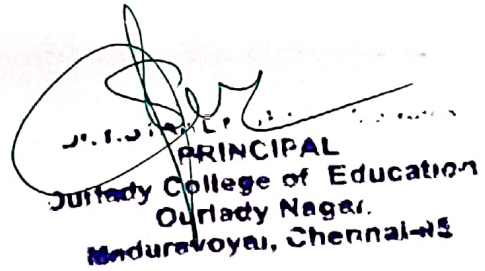 PRINCIPAL
Ourlady College of Education
Ourlady Nagar,
Maduravoyal, Chennai-95